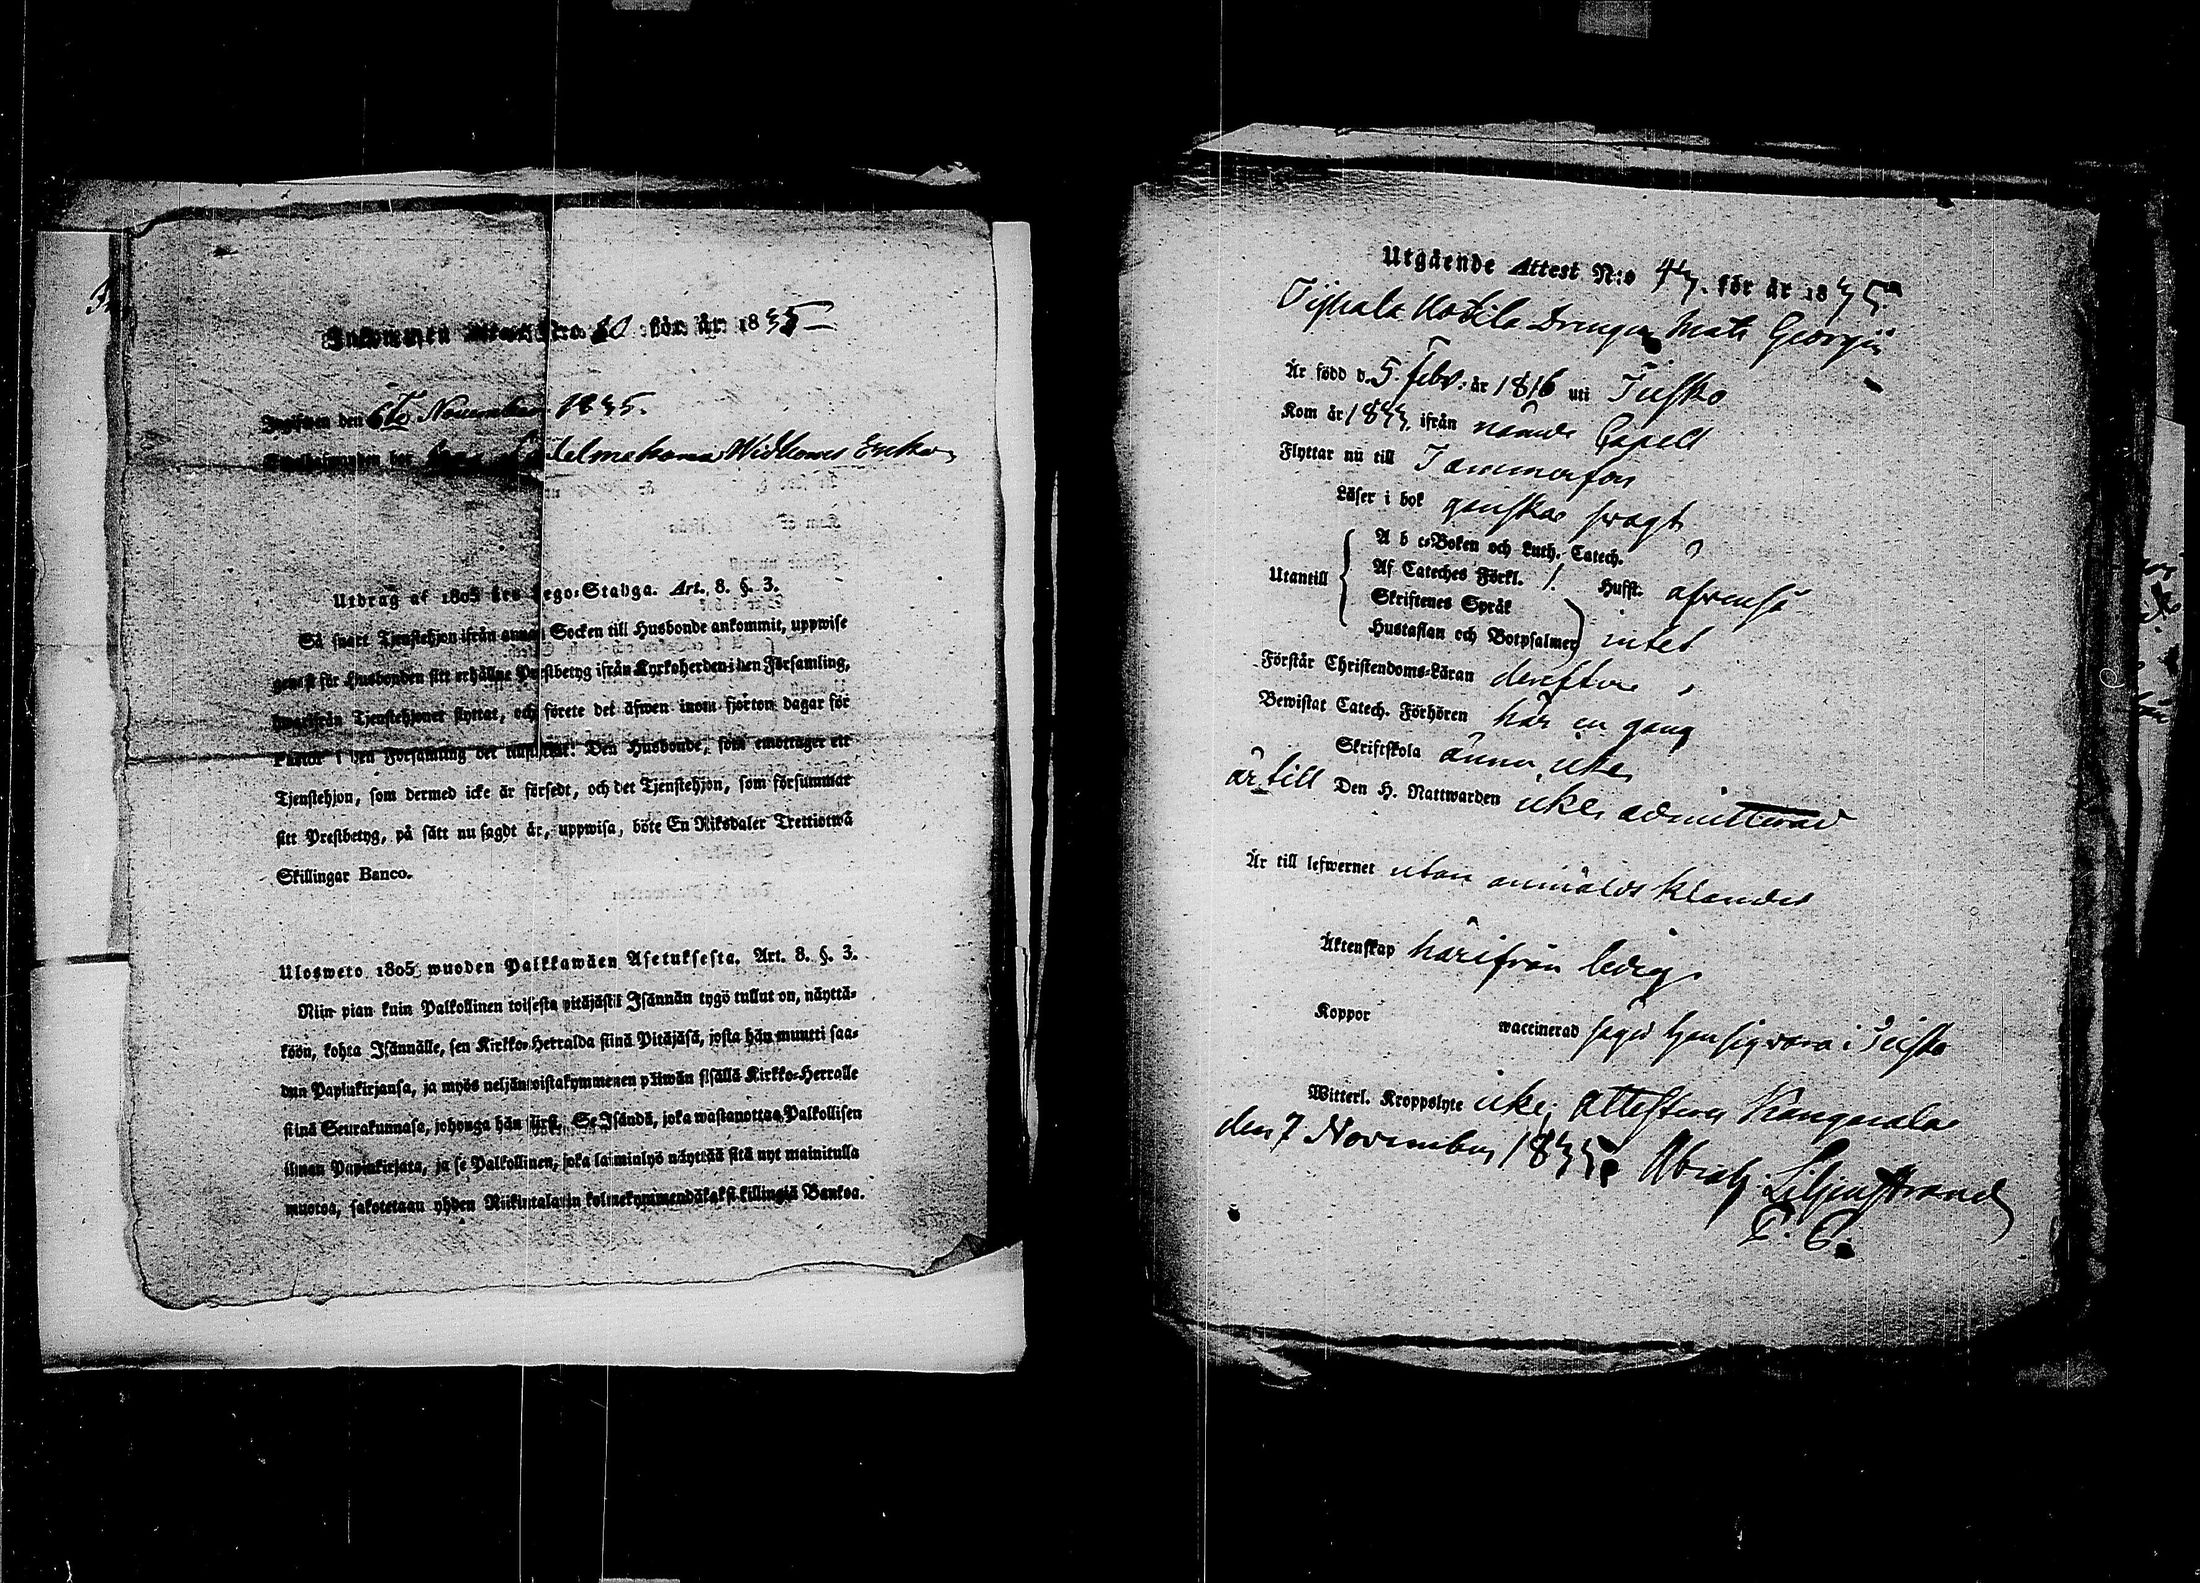 Inkommen Attest N:ro 60 för år 1835
Ingifwen den 6te November 1835.
Widbomes Enka
Utdrag af 1805 års Lego-Stadga. Art. 8. §. 3.
Så snart Tjenstehjon ifrån annan Socken till Husbonde ankommit, uppwise
genast för Husbonden sitt erhållne Prestbetyg ifrån Kyrkoherden i den Församling,
hwarifrån Tjenstehjonet flyttat, och förete det äfwen inom fjorton dagar för
Pastor i den Församling det Den Husbonde, som emottager ett
Tjenstehjon, som dermed icke är försedt, och det Tjenstehjon, som försummar
sitt Prestbetyg, på sätt nu sagdt är, uppwisa, böte En Riksdaler Trettiotwå
Skillingar Banco.
Ulosweto 1805 wuoden Palkkawäen Asetuksesta. Art. 8. §. 3.
Niin pian kuin Palkollinen toisesta pitäjästä Isännän tygö tullut on, näyttä-
köön, kohta Isännälle, sen Kirkko-Herralda siinä Pitäjäsä, josta hän muutti saa-
dun Papinkirjansa, ja myös neljäntoistakymmenen päiwän sisällä Kirkko-Herralle
siinä Seurakunnasa, johonga hän siirsi. Se Isändä, joka wastanottaa Palkollisen
ilman Papinkirjata, ja se Palkollinen, joka laiminlyö näyttää sitä nyt mainitulla
muotoa, sakotetaan yhden Riikintalarin kolmekymmendäkaksi killingiä Bankoa.
Utgående Attest N:o 47. för år 1835
Kottila Drengen Matts Georgii
Är född d. 5 Febr. år 1816 uti Teisko
Kom år 1833 ifrån nämde Capell
Flyttar nu till Tammerfors
Läser i bok ganska swagt
A b c-Boken och Luth. Catech.
Utantill Af Cateches Förkl. 1. Husst. afwenså
Skriftenes Språk
Hustaflan och Botpsalmer intet
Förstår Christendoms-Läran derefter
Bewistat Catech. Förhören här en gång
Skriftskola ännu icke
är till Den H. Nattwarden icke admitterad
Är till lefwernet utan anmäldt klander
Äktenskap härifrån ledig
Koppor waccinerad säger han sig wara i Teisko
Witterl. Kroppslyte icke, attesterar Kangasala
den 7 November 1835. Abrah. Liljenstrand